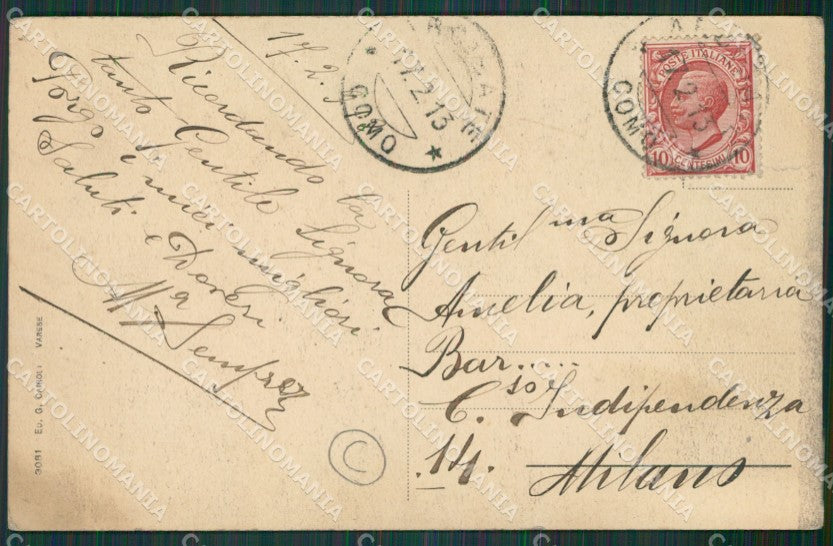 17.2.
Ricordando la
tanto Gentile Signora
Porgo i miei migliori
Saluti e Doveri
Ma
COMO
17.2.13
COMO
POSTE ITALIANE
10 CENTESIMI 10
Gentil ma Signora
Amelia, proprietaria
Bar.....
C. Indipendenza
14. Milano
3081 ED. G. VARESE
C
CARTOLINOMANIA